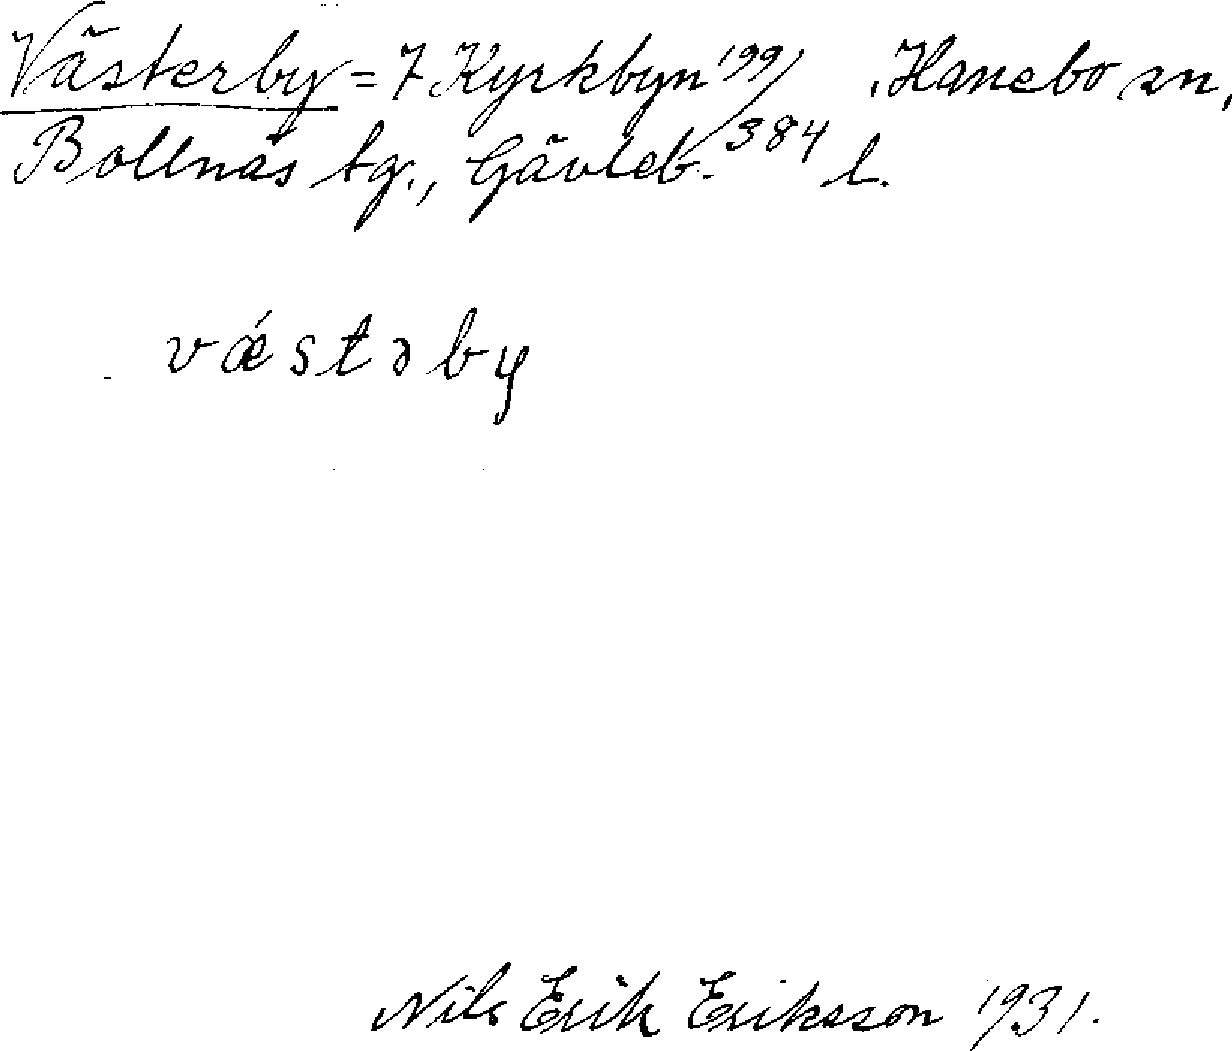 Västerby = 7 Kyrkbyn 199/384, Hanebo sn,
Bollnäs tg., Gävleb. l.
vǽstəby
Nils Erik Eriksson 1931.